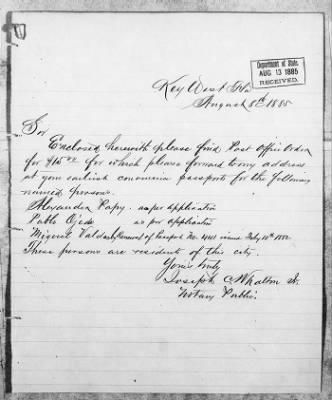 Department of State,
AUG 13 1885
RECEIVED.
Key West Fla
August 8th 1885
Sir
Enclosed herewith please find Post Office Order
for $15.00 for which please forward to my address
at your earliest convenience passports for the following
named persons.
Alexander Papy as per application
Pablo Ojeda as per application
Miguel Valdes renewal of Passport No. issued July 10th 1882.
These persons are residents of this city.
Yours truly
Joseph Whalton Jr.
Notary Public.